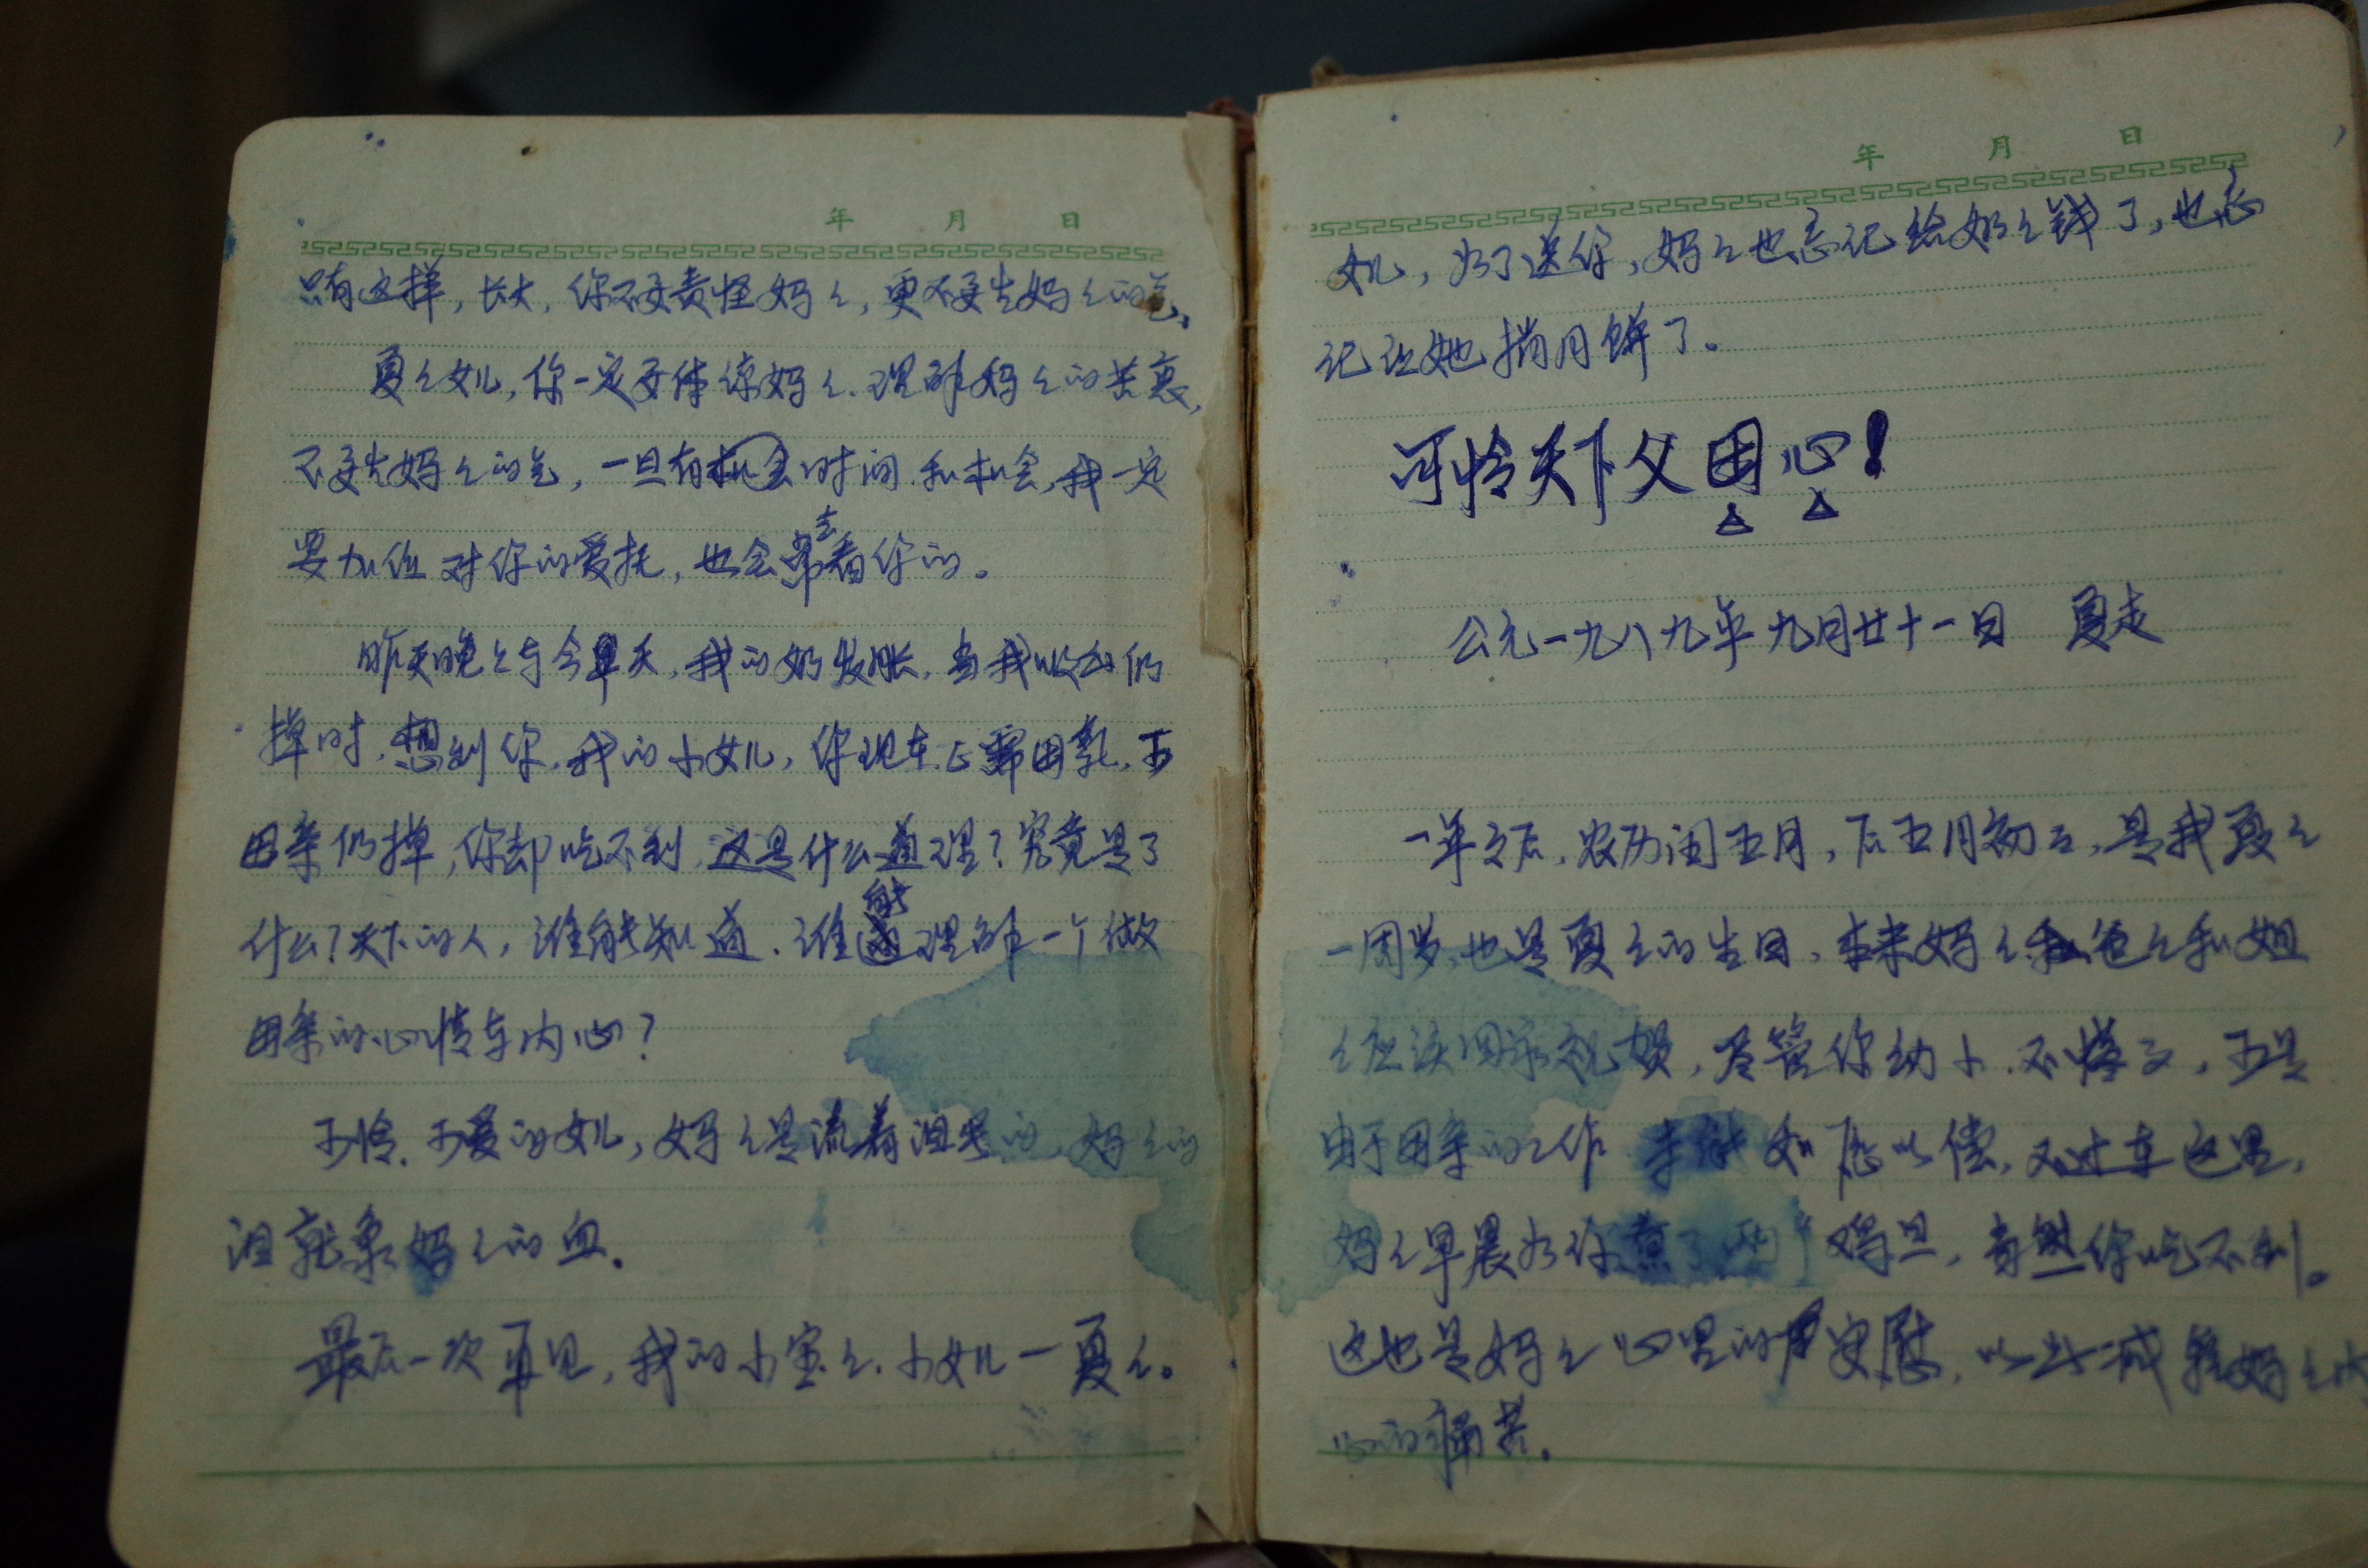 年 月 日
只有这样，长大，你不要责怪妈々，更不要生妈々的气。
夏々女儿，你一定要体谅妈々.理解妈々的苦衷，
不要生妈々的气，一旦有机会时间和机会，我一定
要加倍对你的爱抚，也会常去看你的。
昨天晚上与今早天，我的奶发胀，当我收出扔
掉时，想到你，我的小女儿，你现在正需母乳，可
母亲扔掉，你却吃不到，这是什么道理？究竟是了
什么？天下的人，谁能知道.谁能理解一个做
母亲的心情与内心？
可怜.可爱的女儿，妈々是流着泪写的，妈々的
泪就象妈々的血。
最后一次再见，我的小宝々.小女儿一夏々。
年 月 日
女儿，为了送你，妈々也忘记给奶々钱了，也忘
记让她捎月饼了。
可怜天下父母心！
公元一九八九年九月廿十一日 夏走
一年之后，农历闰五月，后五月初五，是我夏々
一周岁，也是夏々的生日，本来妈々和爸々和姐
々应该回家祝贺，尽管你幼小.不懂事，可是
由于母亲的工作 未能如愿以偿，不过在这里，
妈々早晨为你煮了两个鸡旦，当然你吃不到。
这也是妈々心里的安慰，以此减轻妈々内
心的痛苦。